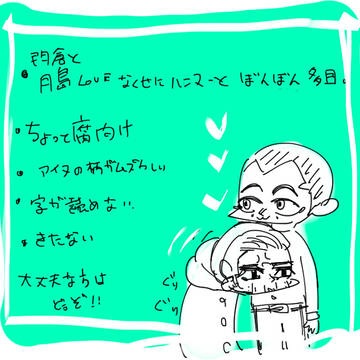 門倉と
・月島LOVEなくせにハニマーと ぼんぼん 多目。
・ちょって腐向け
・アイヌの柄がムズかしい
・字が読めない
・きたない
大丈夫ならば
どうぞ!!
ぐり
ぐり